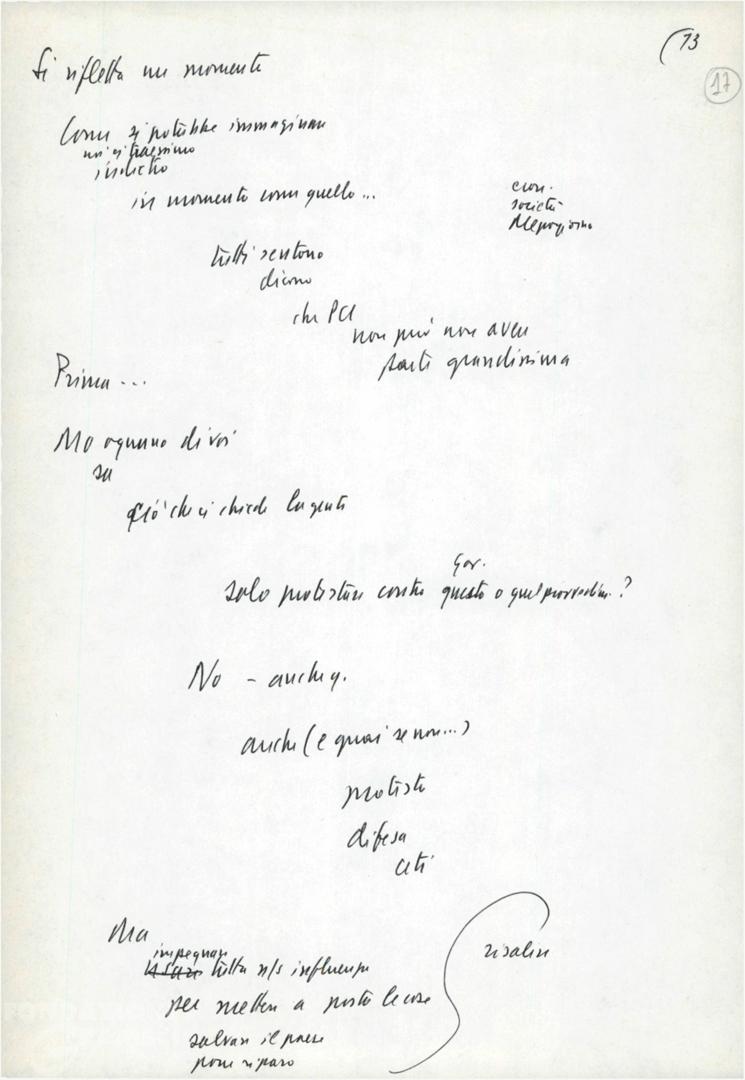 (73
17
Si rifletta un momento
Come si potrebbe immaginare
noi ci traessimo
indietro
in momento come quello...
econ.
società
Mezzogiorno
tutti sentono
dicono
che PCI
non può non avere
parte grandissima
Prima...
Ma ognuno di voi
sa
ciò che ci chiede la gente
Gov.
solo protestare contro questo o quel provvedim.?
No - anche q.
anche (e guai se non...)
protesta
difesa
ceti
Ma
impegnare
usare tutta n/s influenza
per mettere a posto le cose
salvare il paese
porre riparo
risalire